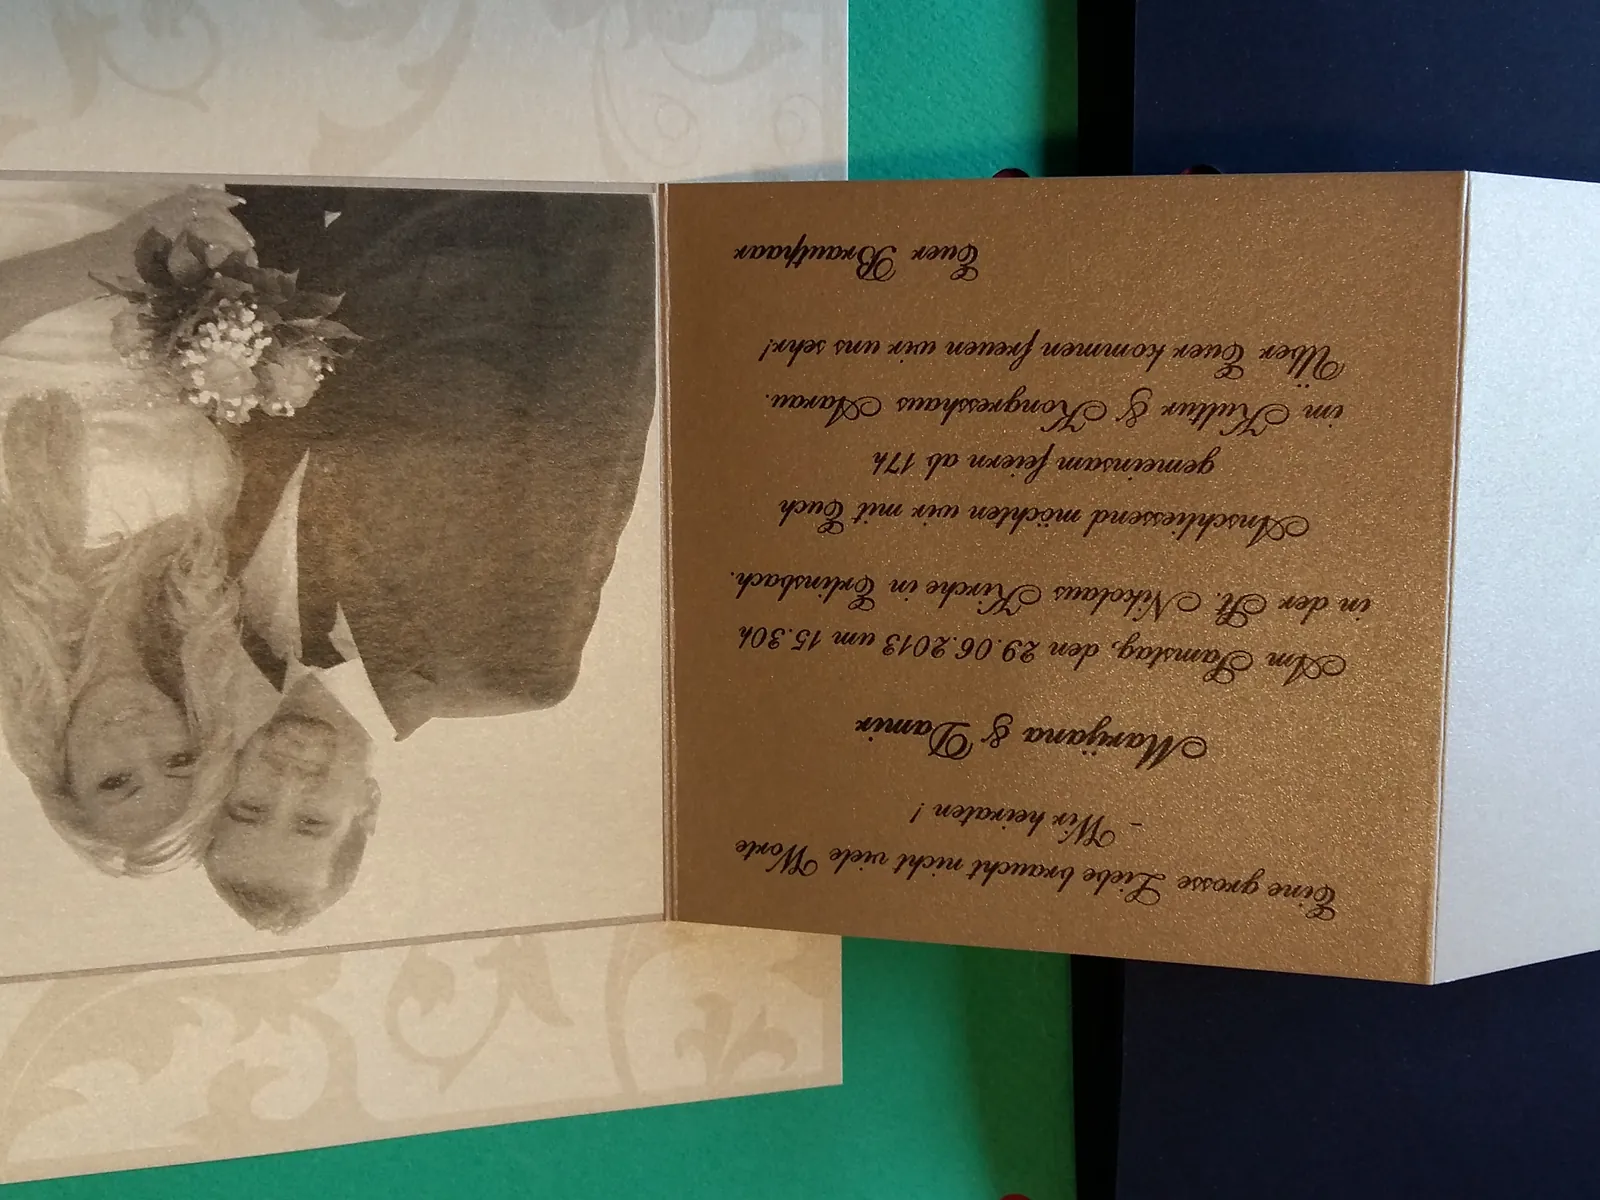 Eine grosse Liebe braucht nicht viele Worte
- Wir heiraten !
Marijana & Damir
Am Samstag, den 29.06.2013 um 15.30h
in der St. Nikolaus Kirche in Erlinsbach.
Anschliessend möchten wir mit Euch
gemeinsam feiern ab 17h
im Kultur & Kongresshaus Aarau.
Über Euer kommen freuen wir uns sehr!
Euer Brautpaar